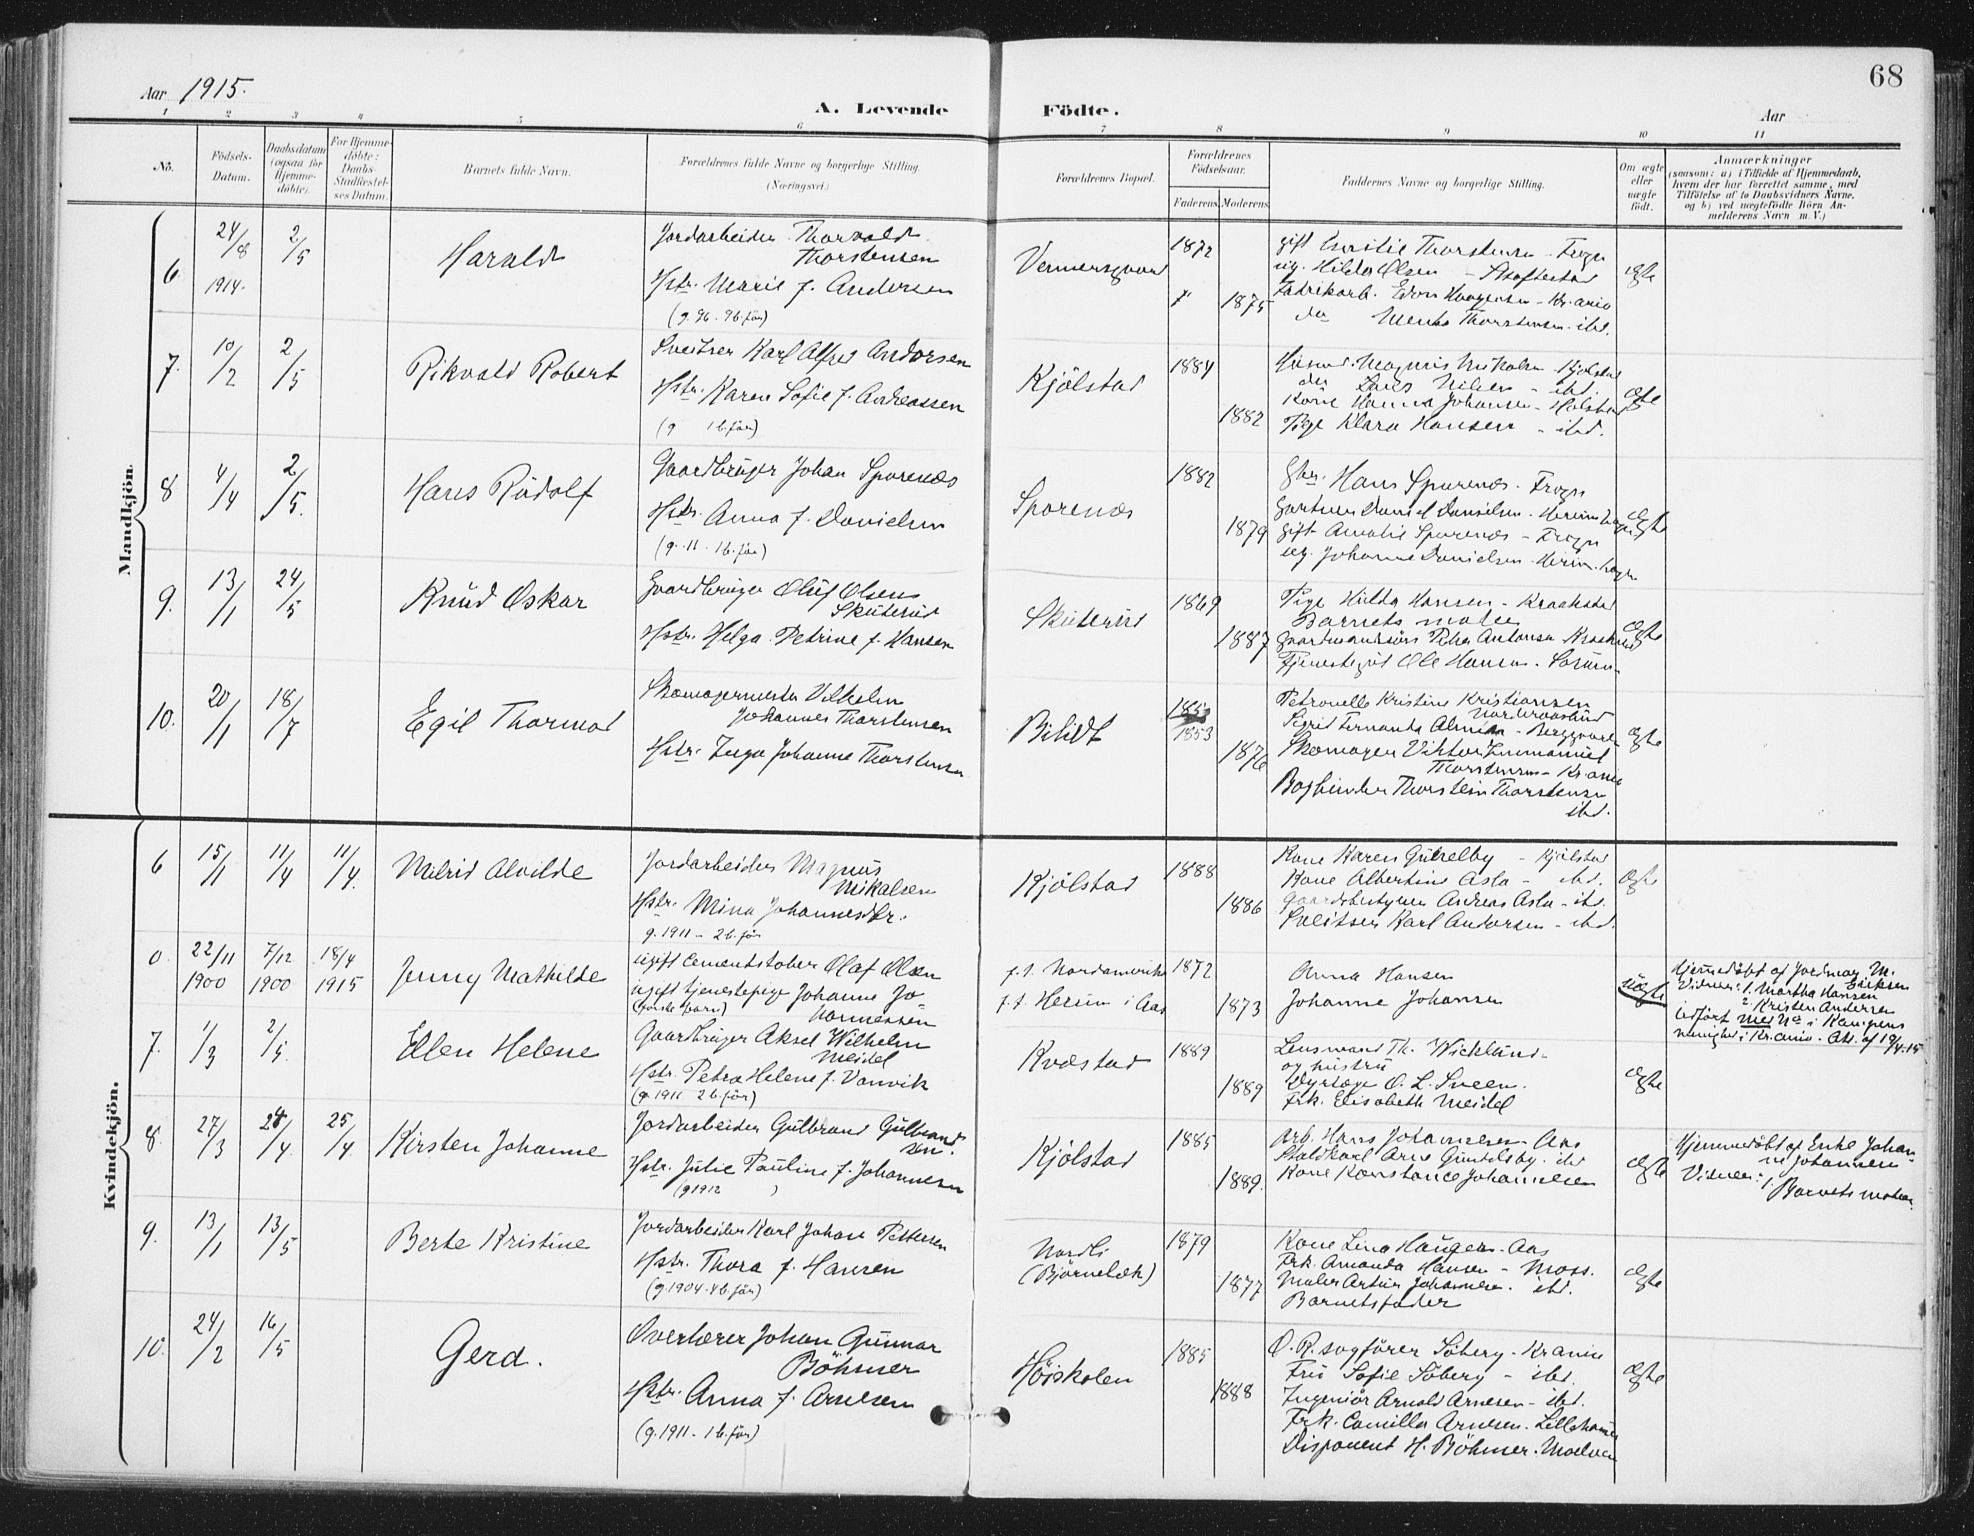 68
Aar 1915.
A. Levende Födte.
Aar
1 2 3 4 5 6 7 8 9 10 11
No.
Födsels-Datum.
Daabsdatum (ogsaa for Hjemme-döbte).
For Hjemme-döbte: Daabs-Stadfæstel-ses Datum.
Barnets fulde Navn.
Forældrenes fulde Navne og borgerlige Stilling.
(Næringsvei.)
Forældrenes Bopæl.
Forældrenes Födselsaar.
Faderens Moderens
Faddernes Navne og borgerlige Stilling.
Om ægte eller uægte födt.
Anmærkninger
(saasom: a) i Tilfælde af Hjemmedaab,
hvem der har forrettet samme, med
Tilföielse af to Daabsvidners Navne,
og b) ved uægtefödte Börn An-
melderens Navn m. V.)
Mandkjön.
6 24/8 1914. 2/5 Harald
Jordarbeider Thorvald
Thorstensen
Hstr. Marie f. Andersen
1872
1875
gift Emilie Thorstensen - Frogn
ug. Hilda Olsen
Fabrikarb. - Kr.ania
do Thorstensen - ibd.
ægte
7. 10/2 2/5 Rikvald Robert
Sveitser Karl Alfred Andorsen
Hstr. Karen Sofie f. Andreassen
(g 1 b. før)
Kjölstad
1884
1882
Magnus Mikalsen - Kjölstad
do Lars Nilsen - ibd.
Kone Hanna Johansen
Pige Klara Hansen - ibd.
ægte
8 4/4 2/5. Hans Rudolf
Gaardbruger Johan Sporenæs
Hstr. Anna f. Danielsen
(g. 11 - 1 b. før)
Sporenæs
1882
1879
Gbr. Hans Sporenæs - Frogn
Gartner Daniel Danielsen
gift Amalie Sporenæs - Frogn
ug. Johanne Danielsen
ægte
9. 13/1 24/5 Knud Oskar
Gaardbruger Oluf Olsen
Skuterud
Hstr. Helga Petrine f. Hansen
Skuterud
1869
1887
Pige Hilda Hansen - Kraakstad
Barnets moder
Gaardmandssøn Peder Antonsen
Tjenestegut Ole Hansen
ægte
10. 20/1 18/7 Egil Thormod
Skomagermester Vilhelm
Johannes Thorstensen
Hstr. Inga Johanne Thorstensen
Bilidt
1853
1876
Petronelle Kristine Kristiansen
Sigrid Fernanda
Skomager Viktor Immanuel
Thorstensen - Kr.ania
Bogbinder Thorstein Thorstensen
ibd.
ægte
Kvindekjön.
6 15/1 11/4 11/4. Milrid Alvilde
Jordarbeider Magnus
Mikalsen
Hstr. Mina Johannesdtr.
g. 1911 - 2 b. før
Kjölstad
1888
1886
Kone Karen - Kjölstad
Kone Albertine Asla - ibd.
Gaardsbestyrer Andreas Asla - ibd.
Sveitser Karl Andorsen - ibd.
ægte
0. 22/11 1900 7/12 1900 18/4 1915 Jenny Mathilde
ugift Cementstøber Olaf Olsen
ugift tjenestepige Johanne Jo-
hannessen
f. t. Nordamerika
f. t. Herum i Aas
1872
1873
Anna Hansen
Johanne Johansen
uægte
Hjemmedøbt af Jordmor M.
Eriksen
Vidner: 1. Martha Hansen
2. Kristen Andersen
indført med No i Kampens
menighet i Kr.ania. Att. af 19/4.15
7. 1/3 2/5. Ellen Helene
Gaardbruger Aksel Wilhelm
Meidel
Hstr. Petra Helene f. Vanvik
(g. 1911 2 b. før)
Kvæstad
1889
1889
Lensmand Th. Wicklund
og hustru
Dyrlæge O. L. Sveen.
Frk. Elisabeth Meidel
ægte
8. 27/3 24/4. 25/4. Kirsten Johanne
Jordarbeider Gulbrand Gulbrand-
sen.
Hstr. Julie Pauline f. Johannesen
(g 1912 )
Kjölstad
1885
1889.
Arb. Hans Johannesen - Aas
Staldkarl Arne - ibd
Kone Konstance Johannesen
ægte
Hjemmedøbt af Enke Johan-
ne Johannesen
Vidner: 1. Barnets moder.
9. 13/1 13/5 Berte Kristine
Jordarbeider Karl Johan Pettersen
Hstr. Thora f. Hansen
(g. 1904. 4 b. før)
Nordli
(Bjørnebæk)
1879
1877
Kone Lina Haugen - Aas
Frk. Amanda Hansen - Moss.
Maler Artur Johannesen. ibd.
Barnets fader
ægte
10. 24/2 16/5 Gerd.
Overlærer Johan Gunnar
Böhmer
Hstr. Anna f. Arnesen
(g. 1911 - 1 b. før)
Höiskolen
1885
1888
O. R. sagfører Söberg - Kr.ania
Fru Sofie Söberg - ibd.
Ingeniör Arnold Arnesen - ibd.
Frk. Camilla Arnesen. Lillehamer
Disponent H. Böhmer.
ægte